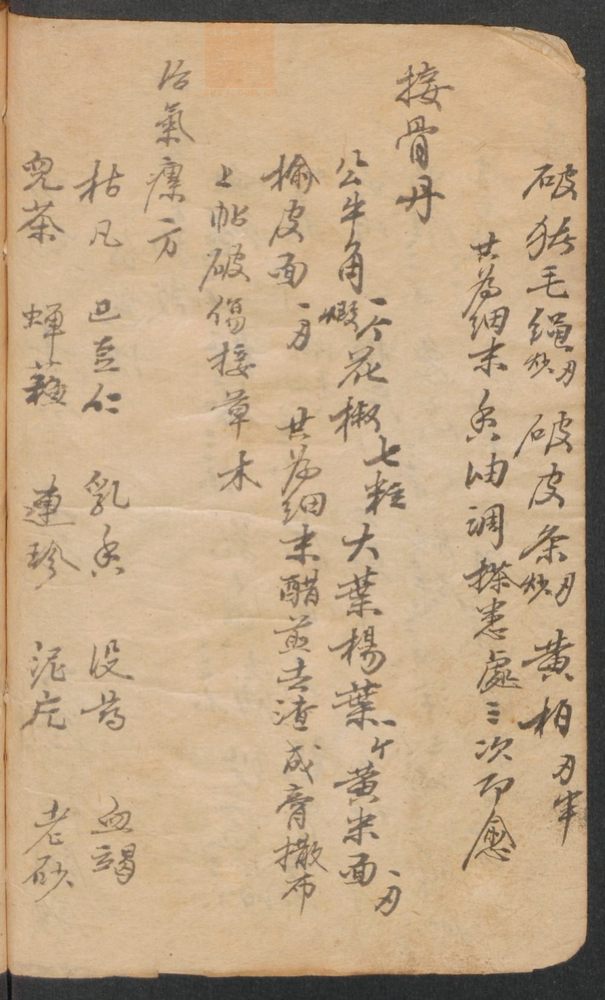 破毛繩炒 破皮条炒 黄柏
共為細末香油調搽患處三次即愈
接骨丹
公牛角一个煅花椒七粒大葉楊葉一个黄米面一
榆皮面一 共為細末醋煎去渣成膏撒布
上帖破傷接草木
治氣瘰方
枯凡 巴豆仁 乳香 没药 血竭
兒茶 蝉蘓 連珍 泥庀 老砂